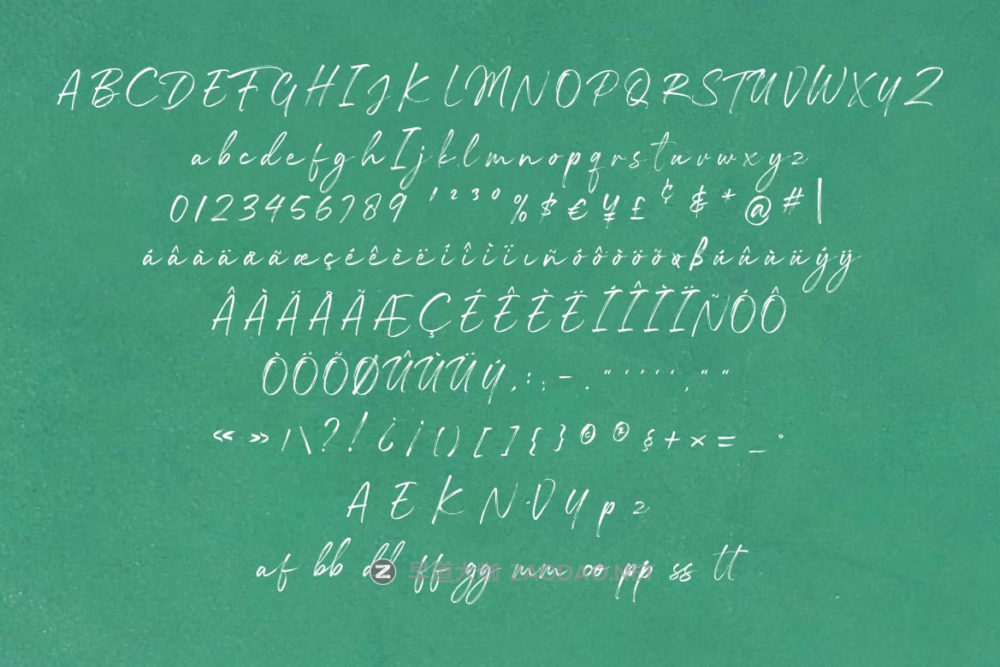 A B C D E F G H I J K L M N O P Q R S T U V W X Y Z
a b c d e f g h I j k l m n o p q r s t u v w x y z
0 1 2 3 4 5 6 7 8 9 ¹ ² ³ ⁰ % $ € ¥ £ ¢ & * @ # |
á â à ä å ã æ ç é ê è ë í î ì ï ı ñ ó ô ò ö õ ø ß ú û ù ü ý ÿ
Â À Ä Å Ã Æ Ç É Ê È Ë Í Î Ì Ï Ñ Ó Ô
Ò Ö Õ Ø Û Ù Ü Ý . : ; - . " ' ' ' ' , " "
« » / \ ? ! ¿ ¡ ( ) [ ] { } © ® § + × = _ ·
A E K N O Y p z
af bb dd ff gg mm oo pp ss tt